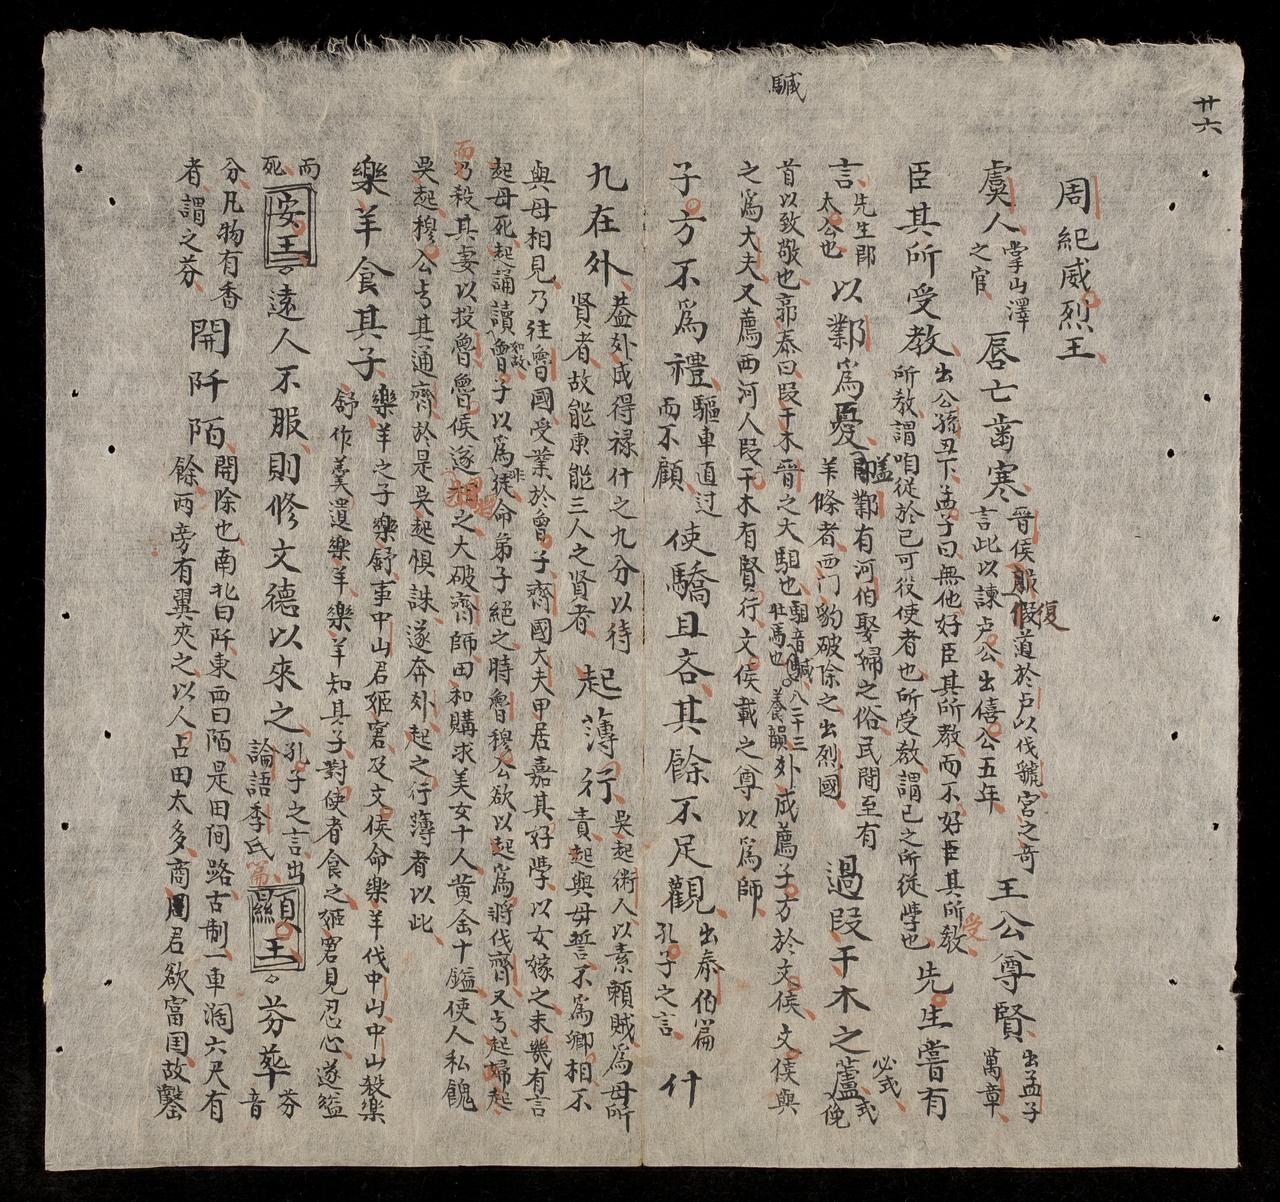 廿六
駴
周紀威烈王
虞人掌山澤之官 唇亡齒寒晉侯服復假道於虍以伐虢宮之奇言此以諫虍公出僖公五年 王公尊賢出孟子萬章
臣其所受教出公孫丑下孟子曰無他好臣其所教而不好臣其所受教所教謂咱從於己可役使者也所受教謂己之所從學也 先生嘗有
言先生郎太公也 以鄴爲憂盖鄴有河伯娶婦之俗民間至有羊條者西門豹破除之出烈國 過段干木之蘆必式式俛
首以致敬也郭泰曰段干木晉之大駔也駔音駴八二十三牡馬也養韻外成薦子方於文侯文侯與
之爲大夫又薦西河人段干木有賢行文侯載之尊以爲師
子方不爲禮驅車直过而不顧 使驕且吝其餘不足觀出泰伯篇孔子之言 什
九在外葢外成得禄什之九分以待賢者故能東能三人之賢者 起薄行吳起術人以素頼賊爲母所責起與母誓不爲卿相不
與母相見乃往魯國受業於曾子齊國大夫甲居嘉其好學以女嫁之未㡬有言
起母死起誦讀如故曾子以爲非徒命弟子絕之時魯穆公欲以起爲將伐齊又亐起婦起
而乃殺其妻以投魯魯侯遂相之大破齊師田和購求美女十人黄金十鎰使人私餽
吳起穆公亐其通齊於是吳起惧誅遂奔外起之行薄者以此
樂羊食其子樂羊之子樂舒事中山君姬窘及文侯命樂羊伐中山中山殺樂舒作羹遺樂羊樂羊知其子對使者食之姬窘見忍心遂縊
而死 安王 遠人不服則修文德以來之孔子之言出論語季氏篇 顯王 芬華芬音
分凡物有香者謂之芬 開阡陌開除也南北曰阡東西曰陌是田间路古制一車濶六尺有餘兩旁有翼夾之以人占田太多商君欲富国故鑿